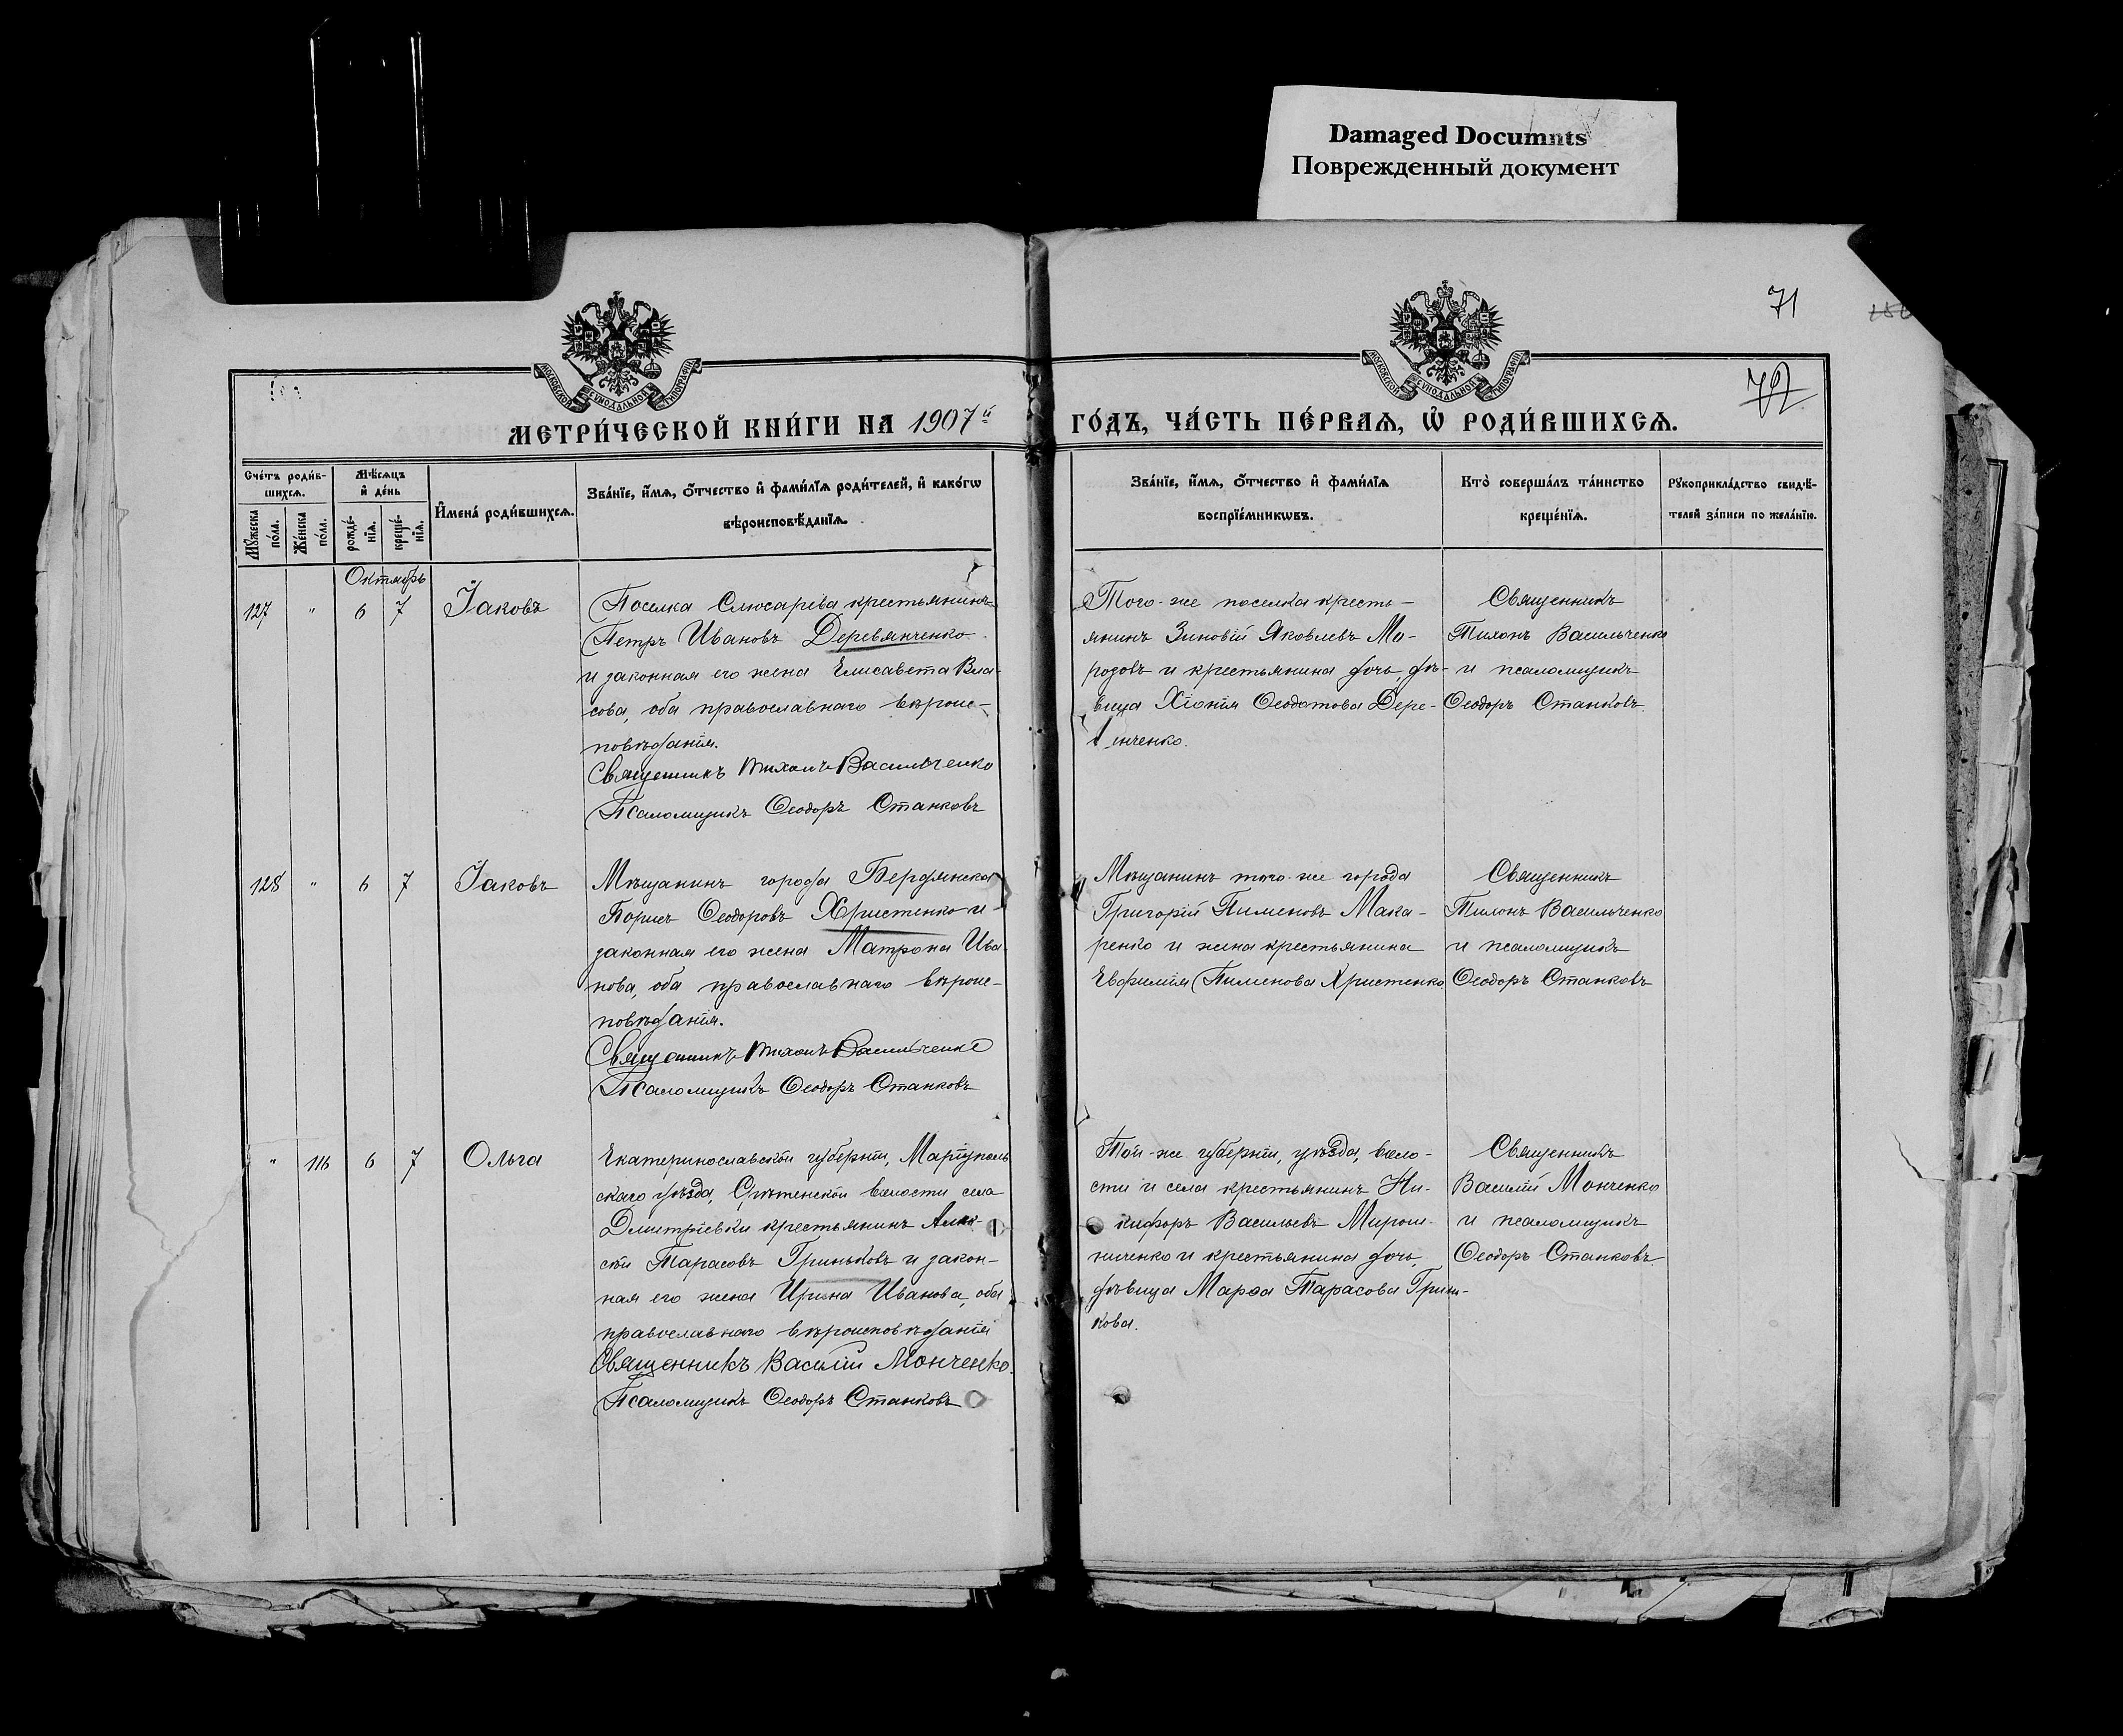 Damaged Documnts
Поврежденный документ
71
72
МОСКОВСКОЙ СѴНОДАЛЬНОЙ ТИПОГРАФІИ
МОСКОВСКОЙ СѴНОДАЛЬНОЙ ТИПОГРАФІИ
МЕТРИ́ЧЕСКОЙ КНИ́ГИ НА 1907й ГО́ДЪ, ЧА́СТЬ ПЕ́РВАѦ, Ѡ҆ РОДИ́ВШИХСѦ.
Сче́тъ роди́в-
шихсѧ.
Мꙋ́жеска по́ла.
Же́нска по́ла.
Мѣ́сѧцъ
и҆ де́нь
рожде́-
нїѧ.
креще́-
нїѧ.
И҆мена̀ роди́вшихсѧ.
Зва́нїе, и҆́мѧ, ѻ҆́тчество и҆ фами́лїѧ роди́телей, и҆ како́гѡ
вѣроисповѣ́данїѧ.
Зва́нїе, и҆́мѧ, ѻ҆́тчество и҆ фами́лїѧ
воспрїе́мникѡвъ.
Кто̀ соверша́лъ та́инство
креще́нїѧ.
Рꙋкоприкла́дство свидѣ́-
телей за́писи по жела́нїю.
Октябрь
127 " 6 7 Іаковъ
Поселка Слюсарева крестьянинъ
Петръ Ивановъ Деревянченко
и законная его жена Елисавета Вла-
сова, оба православнаго вѣроис-
повѣданія.
Священникъ Тихонъ Васильченко
Псаломщикъ Ѳеодоръ Станковъ
Того-же поселка кресть-
янинъ Зиновій Яковлевъ Мо-
розовъ и крестьянина дочь, дѣ-
вица Хіонія Ѳеодотова Дере-
нченко.
Священникъ
Тихонъ Васильченко
и псаломщикъ
Ѳеодоръ Станковъ.
128 " 6 7 Іаковъ
Мѣщанинъ города Бердянска
Борисъ Ѳеодоровъ Христенко и
законная его жена Матрона Ива-
нова, оба православнаго вѣроис-
повѣданія.
Священникъ Тихонъ Васильченко
Псаломщикъ Ѳеодоръ Станковъ
Мѣщанинъ того-же города
Григорій Пименовъ Мака-
ренко и жена крестьянина
Евфимія Пименова Христенко
Священникъ
Тихонъ Васильченко
и псаломщикъ
Ѳеодоръ Станковъ
" 116 6 7 Ольга
Екатеринославской губерніи, Маріуполь
скаго уѣзда, Срѣтенской волости села
Дмитріевки крестьянинъ Алек-
сѣй Тарасовъ Гриньковъ и закон-
ная его жена Ирина Иванова, оба
православнаго вѣроисповѣданія
Священникъ Василій Монченко.
Псаломщикъ Ѳеодоръ Станковъ
Той-же губерніи, уѣзда, воло-
сти и села крестьянинъ Ни-
кифоръ Васильевъ Мирош-
ниченко и крестьянина дочь,
дѣвица Марѳа Тарасова Гринь-
кова.
Священникъ
Василій Монченко
и псаломщикъ
Ѳеодоръ Станковъ.